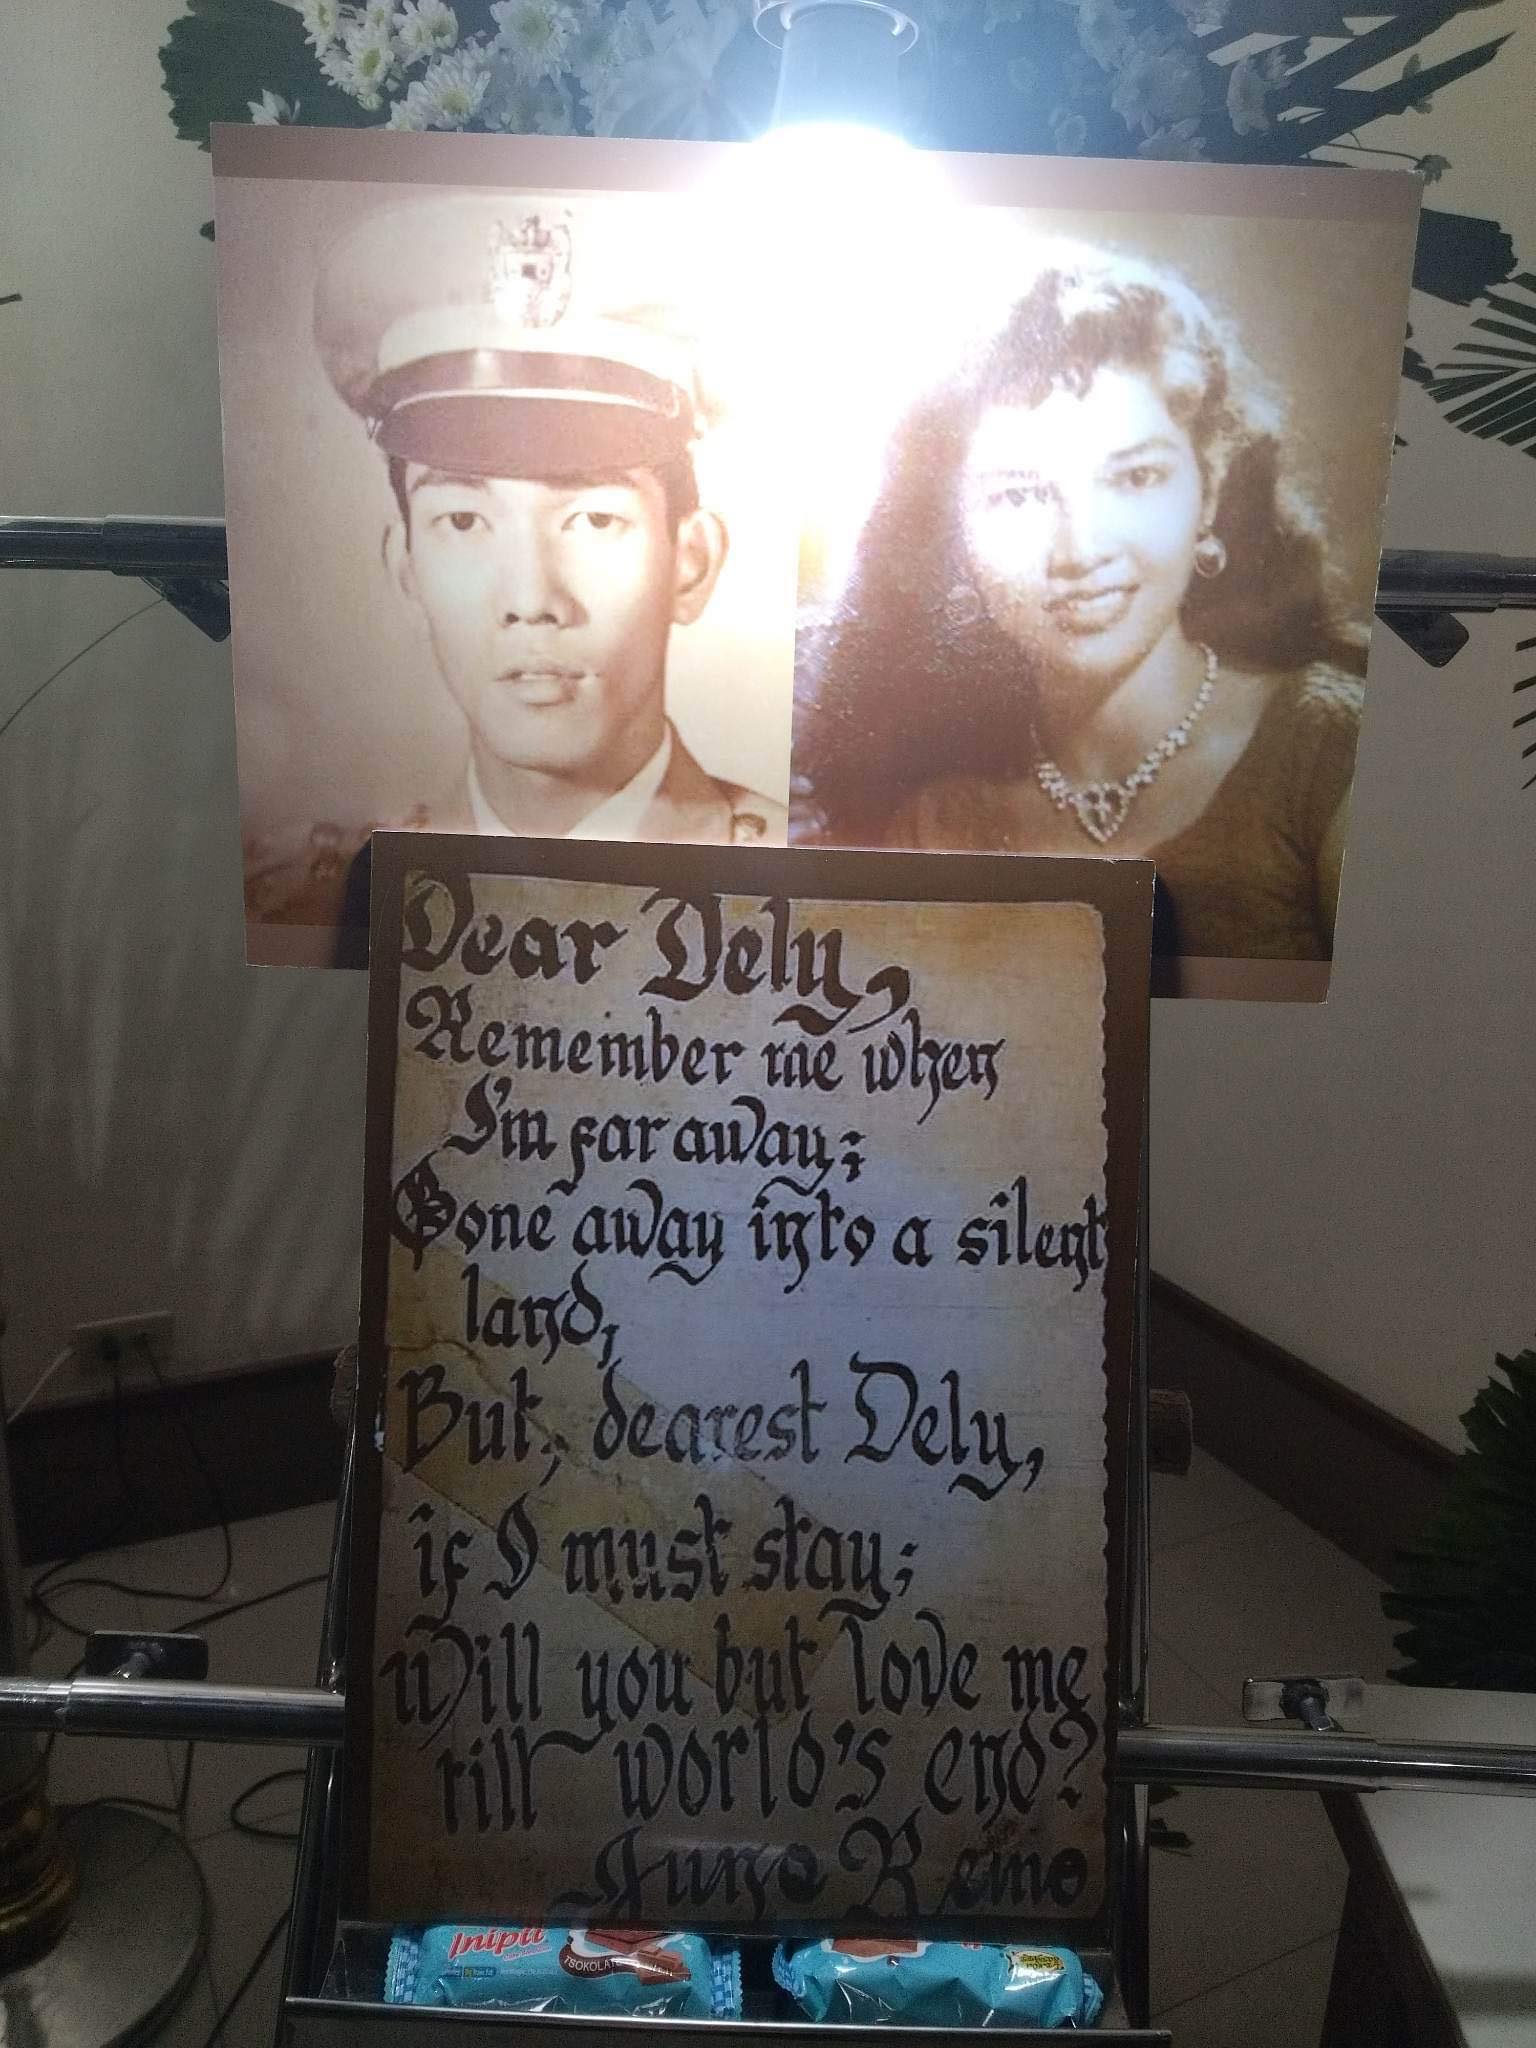 Dear Dely,
Remember me when
I'm far away;
Gone away into a silent
land,
But, dearest Dely,
if I must stay;
Will you but love me
till world's end?
Juno Remo
Inipit
TSOKOLATE